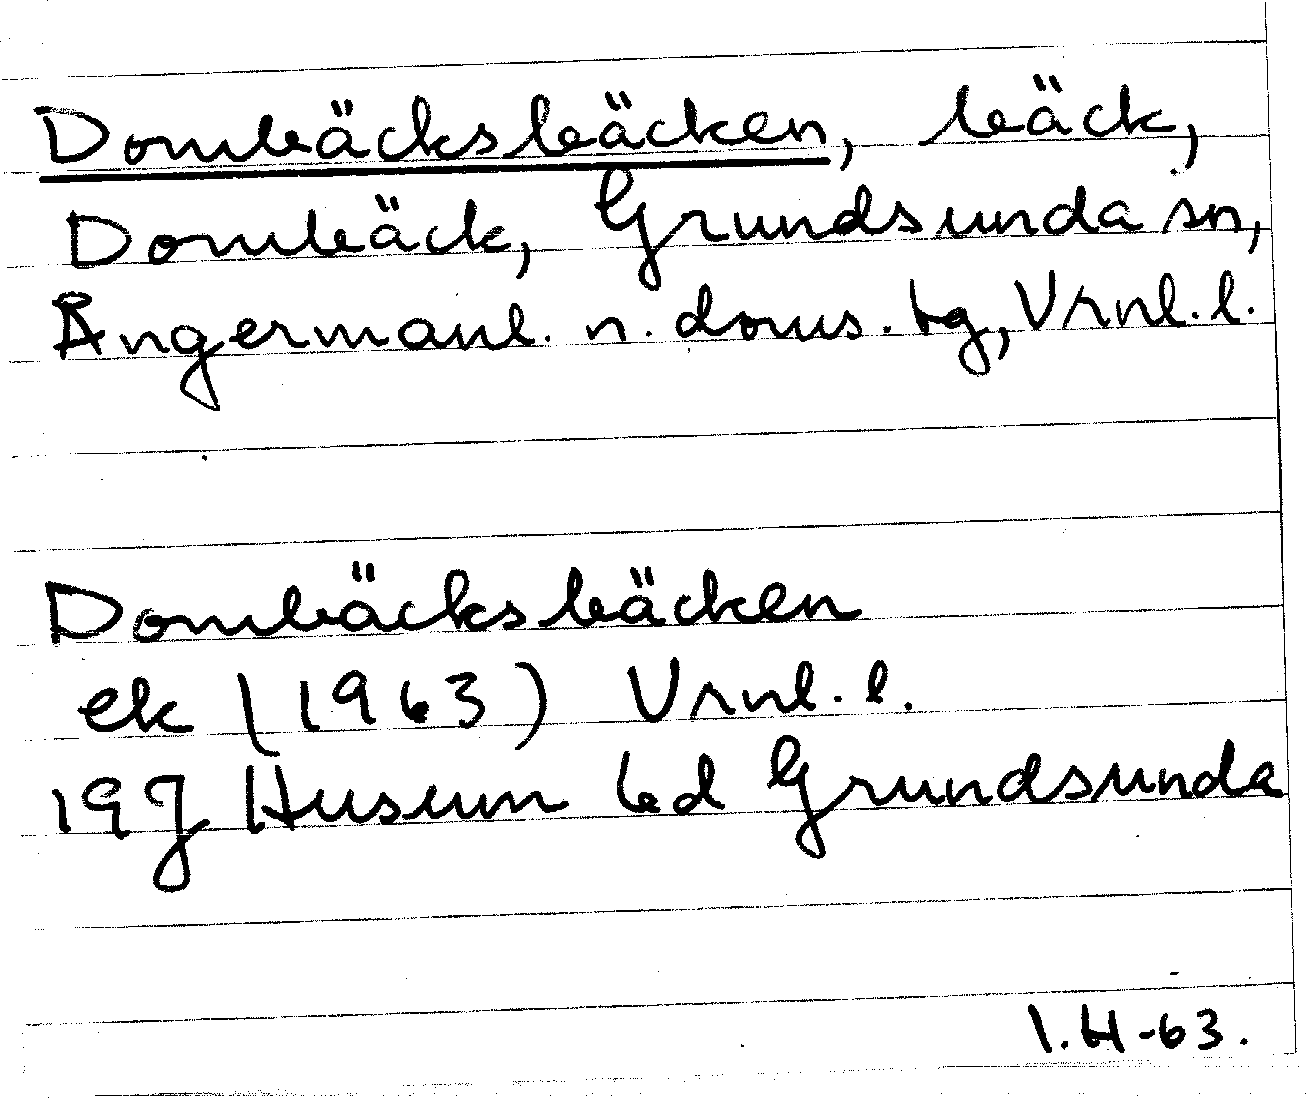 Dombäcksbäcken, bäck,
Dombäck, Grundsunda sn,
Ångermanl. n. doms. tg, Vrnl. l.
Dombäcksbäcken
ek (1963) Vrnl. l.
19J Husum bd Grundsunda
I.H-63.